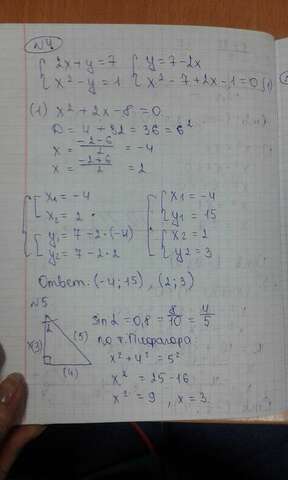 №4
{ 2x+y=7 { y=7-2x
{ x²-y=1 { x²-7+2x-1=0 (1)
(1) x²+2x-8=0
D=4+32=36=6²
x=(-2-6)/2=-4
x=(-2+6)/2=2
{ [ x₁=-4 [ { x₁=-4
{ [ x₂=2 [ { y₁=15
{ [ y₁=7-2·(-4) [ { x₂=2
{ [ y₂=7-2·2 [ { y₂=3
Ответ: (-4;15), (2;3)
№5
sin α=0,8=8/10=4/5
по т. Пифагора
x²+4²=5²
x²=25-16
x²=9, x=3.
α
x(3)
(5)
(4)